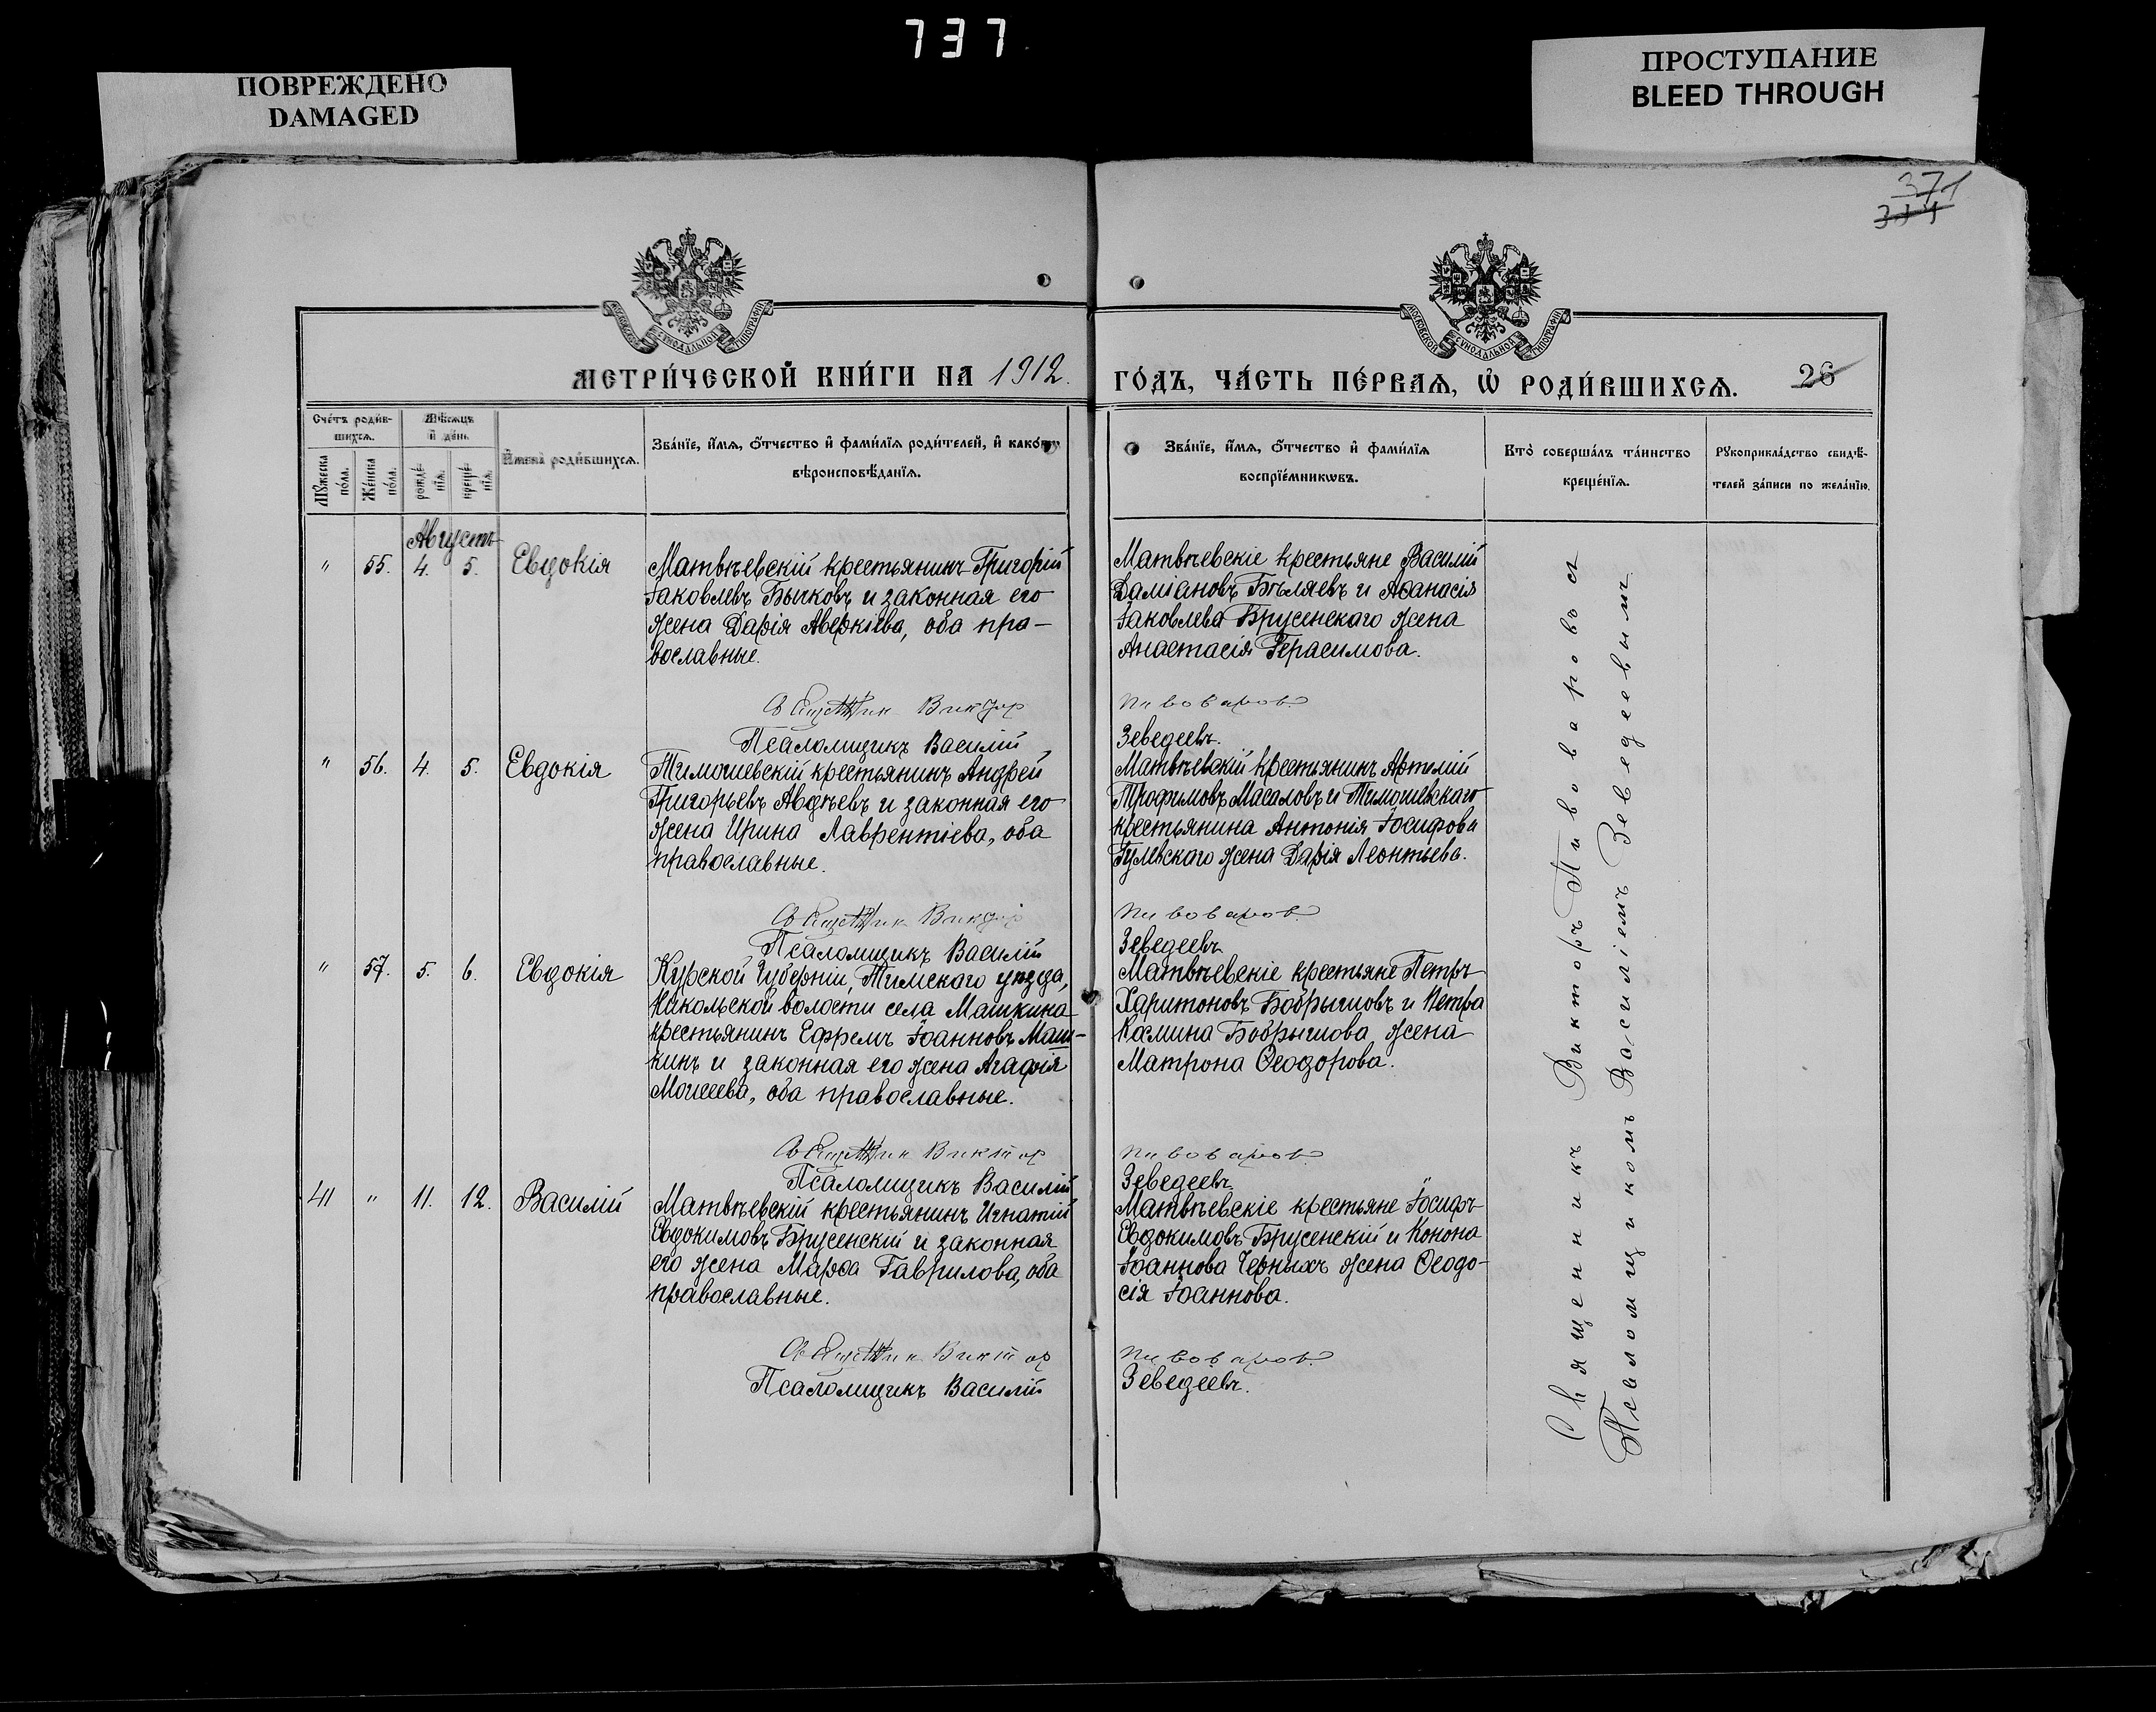 737
ПОВРЕЖДЕНО
DAMAGED
ПРОСТУПАНИЕ
BLEED THROUGH
371
МОСКОВСКОЙ СѴНОДАЛЬНОЙ ТИПОГРАФІИ
МОСКОВСКОЙ СѴНОДАЛЬНОЙ ТИПОГРАФІИ
МЕТРИ́ЧЕСКОЙ КНИ́ГИ НА 1912.
ГО́ДЪ, ЧА́СТЬ ПЕ́РВАѦ, Ѡ҆ РОДИ́ВШИХСѦ.
26
Сче́тъ роди́в-
шихсѧ.
Мꙋжеска по́ла.
Же́нска по́ла.
Мѣ́сѧцъ
и҆ де́нь.
рожде́-
нїѧ.
креще́-
нїѧ.
И҆мена̀ роди́вшихсѧ.
Зва́нїе, и҆́мѧ, ѻ҆́тчество и҆ фами́лїѧ роди́телей, и҆ како́гѡ
вѣроисповѣ́данїѧ.
Зва́нїе, и҆́мѧ, ѻ҆́тчество и҆ фами́лїѧ
воспрїе́мникѡвъ.
Кто̀ соверша́лъ та́инство
креще́нїѧ.
Рꙋкоприкла́дство свидѣ́-
телей за́писи по жела́нїю.
Августъ
" 55. 4. 5. Евдокія
Матвѣевскій крестьянинъ Григорій
Іаковлевъ Бычковъ и законная его
жена Дарія Аверкіева, оба пра-
вославные.
Священник Виктор
Псаломщикъ Василій
Матвѣевскіе крестьяне Василій
Даміановъ Бѣляевъ и Аѳанасія
Іаковлева Брусенскаго жена
Анастасія Герасимова.
Пивоваров.
Зеведеевъ.
" 56. 4. 5. Евдокія
Тимошевскій крестьянинъ Андрей
Григорьевъ Авдѣевъ и законная его
жена Ирина Лаврентіева, оба
православные.
Священник Виктор
Псаломщикъ Василій
Матвѣевскій крестьянинъ Артемій
Трофимовъ Масаловъ и Тимошевскаго
крестьянина Антонія Іосифова
Гулевскаго жена Дарія Леонтьева.
Пивоваров.
Зеведеевъ
" 57. 5. 6. Евдокія
Курской Губерніи, Тимскаго уѣзда,
Никольской волости села Машкина
крестьянинъ Ефремъ Іоанновъ Маш-
кинъ и законная его жена Агафія
Моисеева, оба православные.
Священник Виктор
Псаломщикъ Василій
Матвѣевскіе крестьяне Петръ
Харитоновъ Бобрышовъ и Петра
Космина Бобрышова жена
Матрона Ѳеодорова.
Пивоваров.
Зеведеевъ
41 " 11. 12. Василій
Матвѣевскій крестьянинъ Игнатій
Евдокимовъ Брусенскій и законная
его жена Марѳа Гаврилова, оба
православные.
Священник Виктор
Псаломщикъ Василій
Матвѣевскіе крестьяне Іосифъ
Евдокимовъ Брусенскій и Конона
Іоаннова Черныхъ жена Ѳеодо-
сія Іоаннова.
Пивоваров.
Зеведеевъ.
Священникъ Викторъ Пивоваровъ съ
Псаломщикомъ Василіемъ Зеведеевымъ